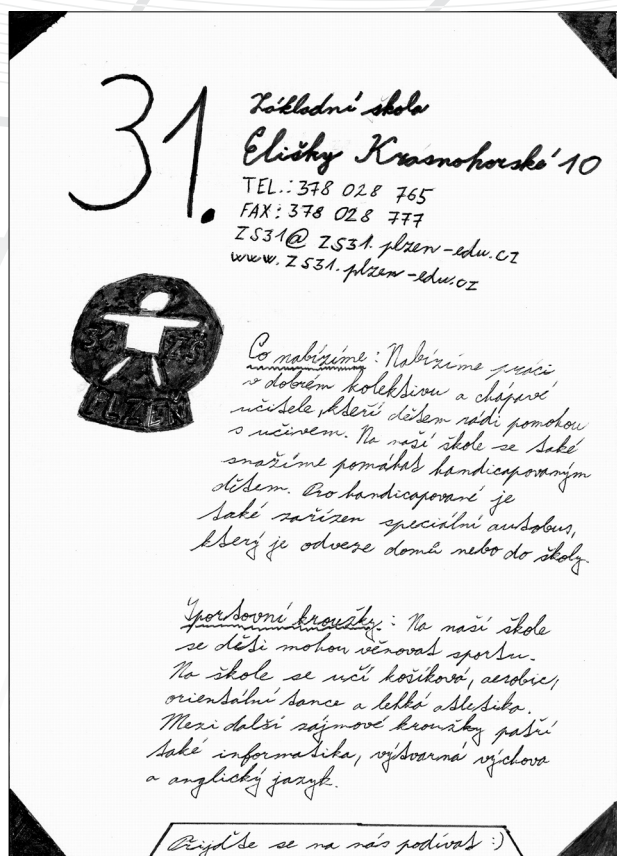 31.
Základní škola
Elišky Krásnohorské 10
TEL.: 378 028 765
FAX: 378 028 777
ZS31@ZS31.plzen-edu.cz
www.ZS31.plzen-edu.cz
31 ZŠ
PLZEŇ
Co nabízíme: Nabízíme práci
v dobrém kolektivu a chápavé
učitele, kteří dětem rádi pomohou
s učivem. Na naší škole se také
snažíme pomáhat handicapovaným
dětem. Pro handicapované je
také zařízen speciální autobus,
který je odveze domů nebo do školy.
Sportovní kroužky: Na naší škole
se děti mohou věnovat sportu.
Na škole se učí košíková, aerobic,
orientální tance a lehká atletika.
Mezi další zájmové kroužky patří
také informatika, výtvarná výchova
a anglický jazyk.
Přijďte se na nás podívat :)